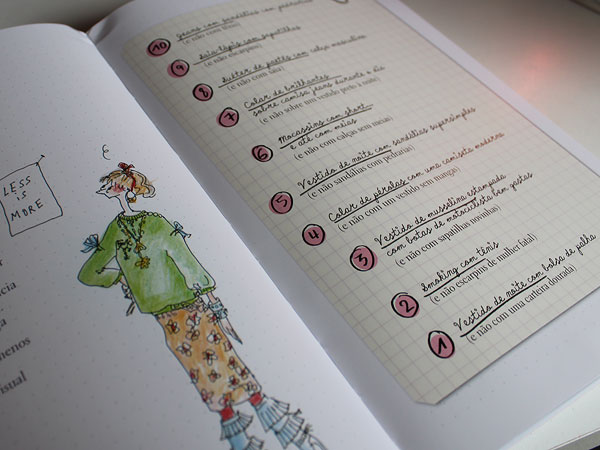 LESS
IS
MORE
cia
nenos
isual
10 Jeans com sandálias com pedrarias
(e não com
9 Saia lápis com sapatilhas
(e não escarpins)
8 Suéter de paetês com calça masculina
(e não com saia)
7 Colar de brilhantes
sobre camisa jeans durante o dia
(e não sobre um vestido preto à noite)
6 Mocassins com short
e até com meias
(e não com calças sem meias)
5 Vestido de noite com sandálias supersimples
(e não sandálias com pedrarias)
4 Colar de pérolas com uma camiseta moderna
(e não com um vestido sem mangas)
3 Vestido de musseline estampada
com botas de motociclista bem gastas
(e não com sapatilhas novinhas)
2 Smoking com tênis
(e não escarpins de mulher fatal)
1 Vestido de noite com bolsa de palha
(e não com uma carteira dourada)